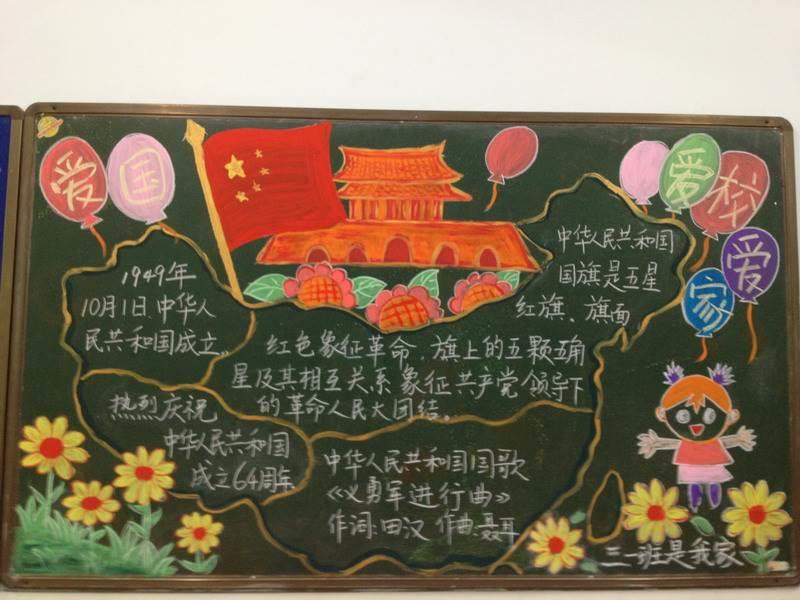 爱国
爱校
爱家
1949年
10月1日.中华人
民共和国成立。
中华人民共和国
国旗是五星
红旗、旗面
红色象征革命.旗上的五颗五角
星及其相互关系象征共产党领导下
的革命人民大团结。
热烈庆祝
中华人民共和国
成立64周年
中华人民共和国国歌
《义勇军进行曲》
作词:田汉 作曲:聂耳
三一班是我家